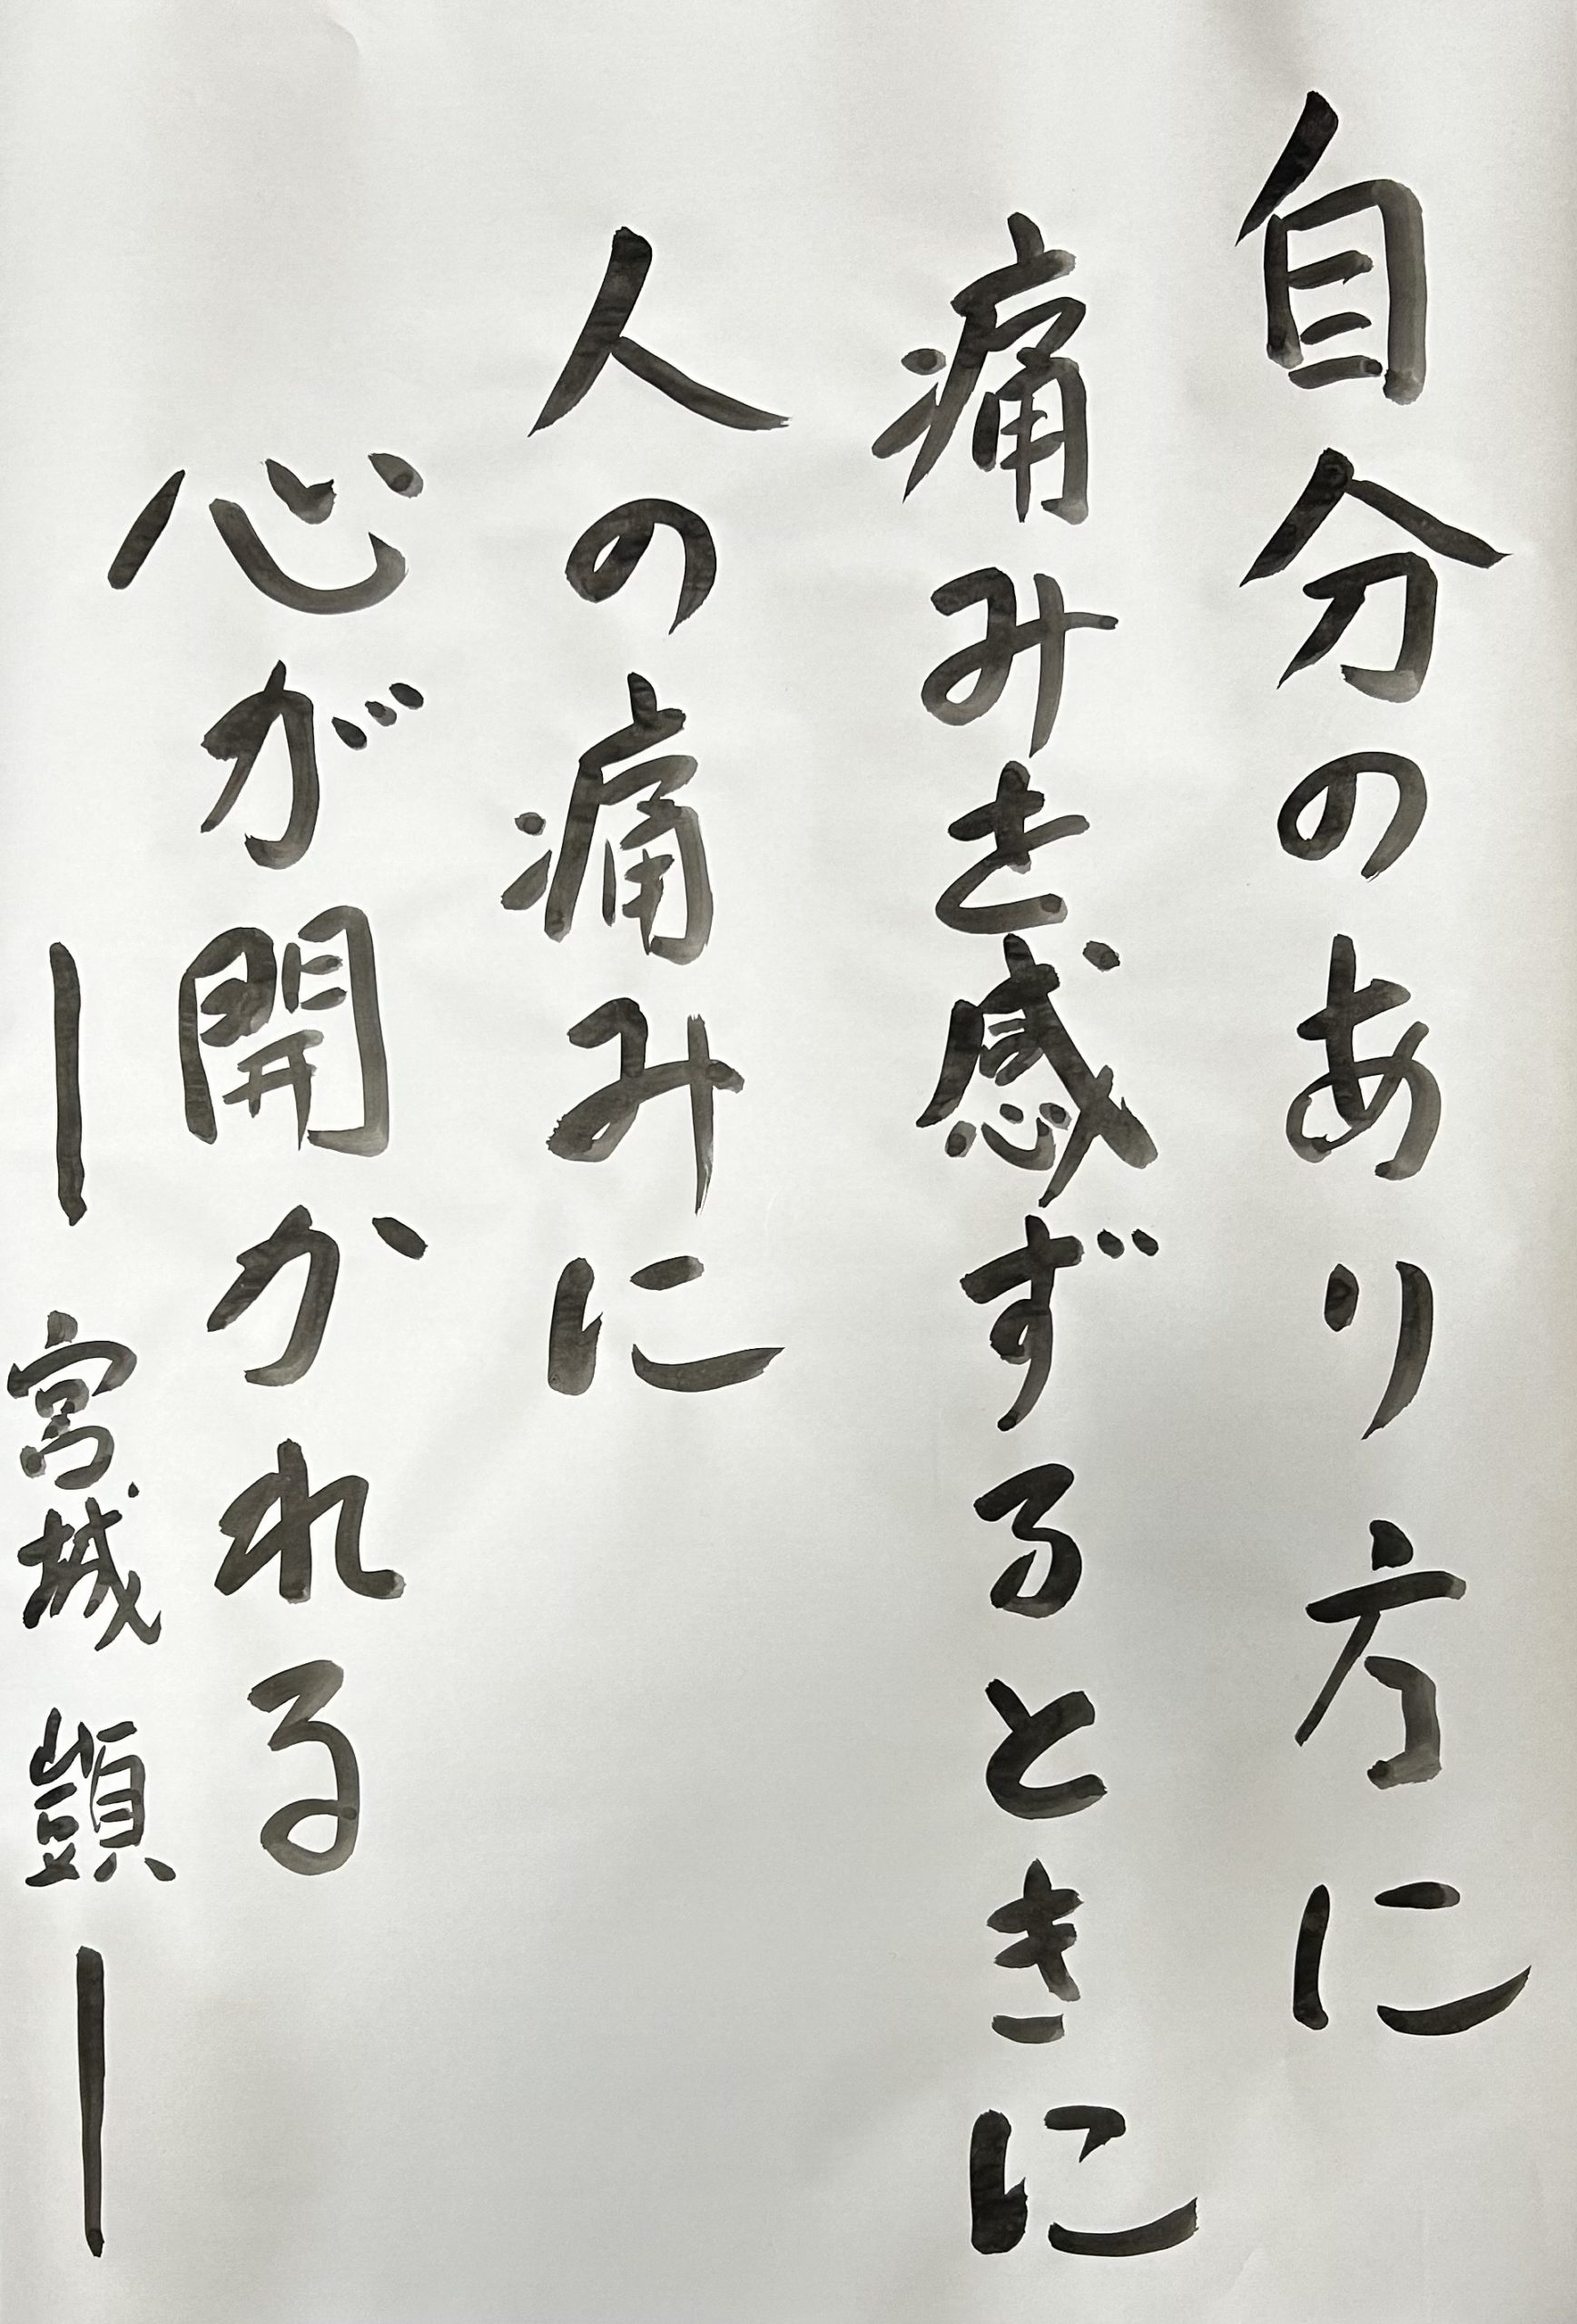 自分のあり方に
痛みを感ずるときに
人の痛みに
心が開かれる
― 宮城 顗 ―